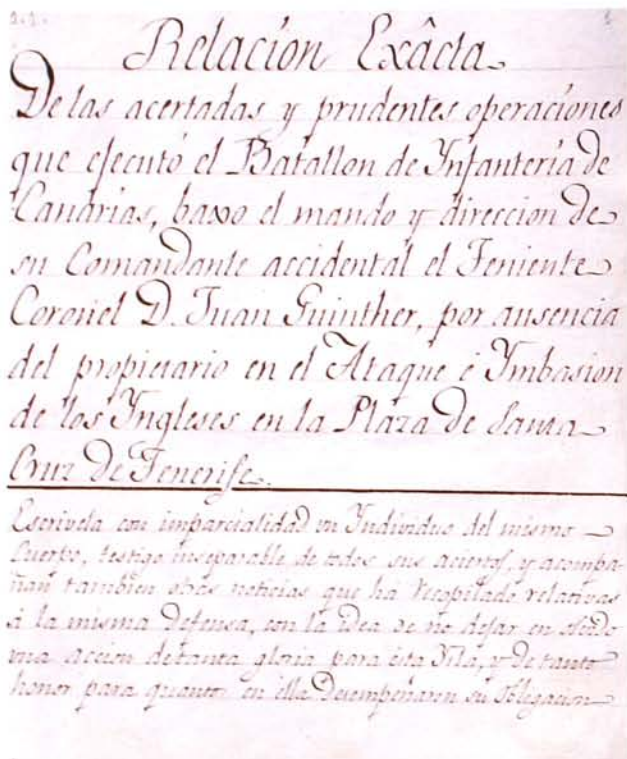 Relacion Exâcta
De las acertadas y prudentes operaciones
que ejecutó el Batallon de Ynfantería de
Canarias, baxo el mando y direccion de
su Comandante accidental el Teniente
Coronel D. Juan Guinther, por ausencia
del propietario en el Ataque é Ymbasion
de los Yngleses en la Plaza de Santa
Cruz De Tenerife.
Escrivela con imparcialidad un Yndividuo del mismo
Cuerpo, testigo inseparable de todos sus aciertos, y acompa-
ñan tambien otras noticias que há recopilado relativas
á la misma defensa, con la idea de no dejar en
una accion de tanta gloria para esta Ysla, y de tanto
honor para quantos en ella Desempeñaron su Obligacion